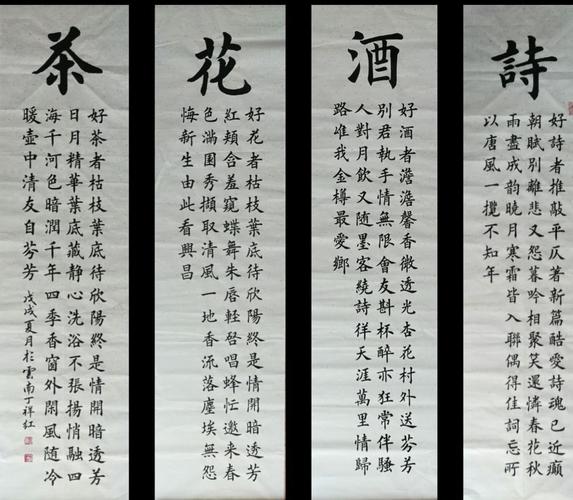 詩
好詩者推敲平仄著新篇酷愛詩魂已近癲
朝賦別離悲又怨暮吟相聚笑還憐春花秋
雨盡成韵曉月寒霜皆入聯偶得佳詞忘所
以唐風一攬不知年
酒
好酒者澹澹馨香徹透光杏花村外送芬芳
別君執手情無限會友斟杯醉亦狂常伴騷
人對月飲又隨墨客繞詩徉天涯萬里情歸
路唯我金樽最愛鄉
花
好花者枯枝葉底待欣陽終是情開暗透芳
紅頰含羞窺蝶舞朱唇輕啓唱蜂忙邀来春
色滿園秀擷取清風一地香流落塵埃無怨
悔新生由此看興昌
茶
好茶者枯枝葉底待欣陽終是情開暗透芳
日月精華葉底藏静心洗浴不張揚悄融四
海千河色暗潤千年四季香窗外閑風随冷
暖壺中清友自芬芳
戊戌夏月於雲南丁祥紅